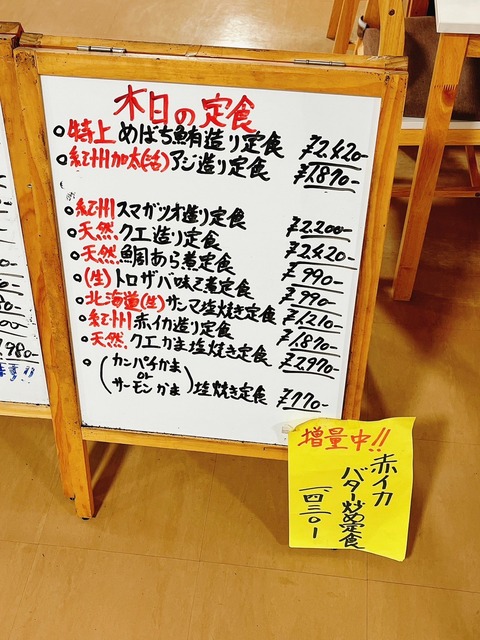 本日の定食
○特上 めばち鮪造り定食 ¥2,420-
○紀州加太(活)アジ造り定食 ¥1,870-
○紀州 スマガツオ造り定食 ¥2,200-
○天然 クエ造り定食 ¥2,420-
○天然 鯛あら煮定食 ¥990-
○(生)トロサバ味そ煮定食 ¥990-
○北海道(生)サンマ塩焼き定食 ¥1,210-
○紀州 赤イカ造り定食 ¥1,870-
○天然 クエかま塩焼き定食 ¥2,970-
○(カンパチかま or サーモンかま)塩焼き定食 ¥770-
増量中!!
赤イカ
バター炒め定食
一四三〇-
980-